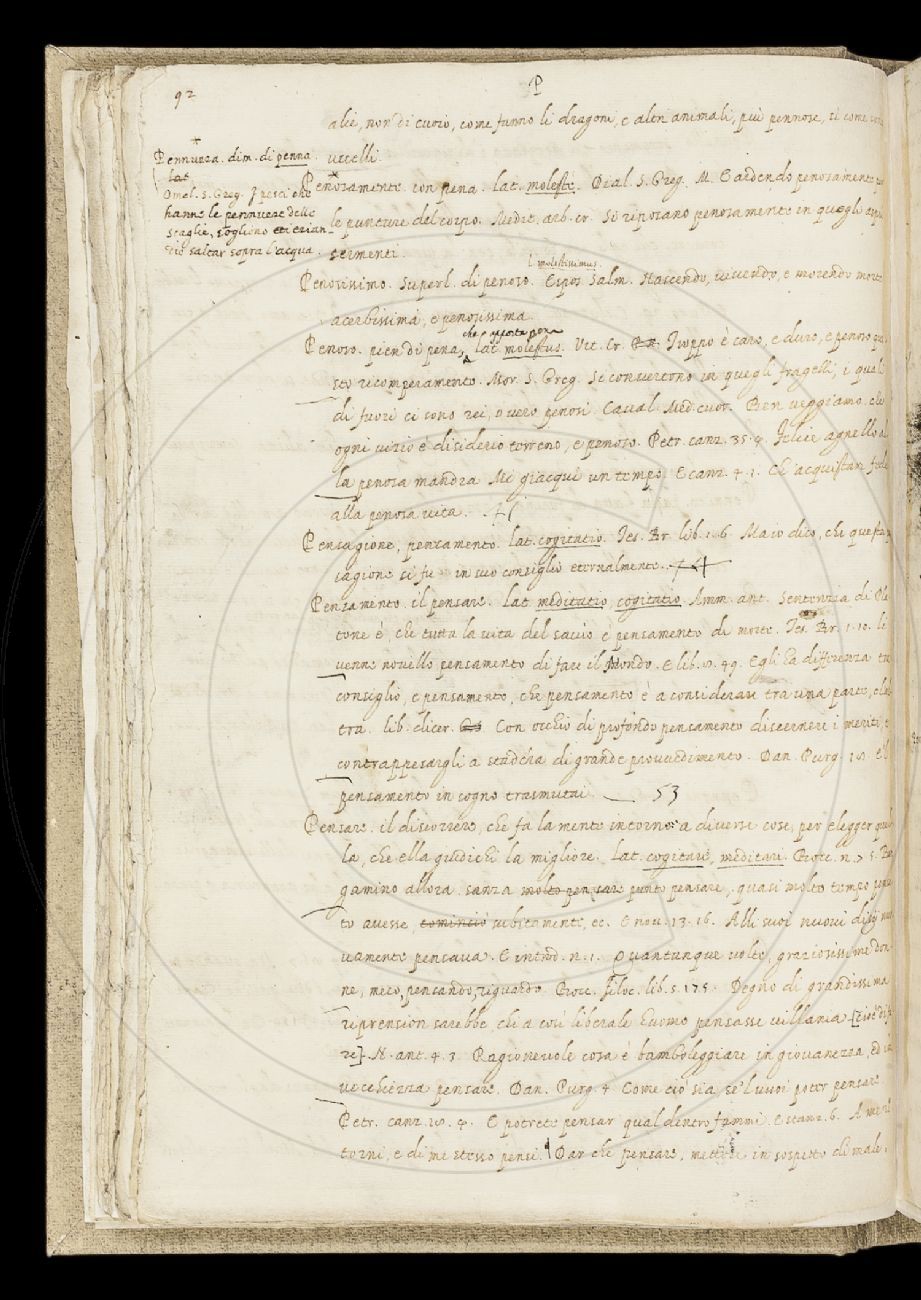 92
P
alie, non di cuoio, come fanno li dragoni, e altri animali, più pennose, sì come
uccelli.
+
Pennuzza. dim. di penna.
lat.
Omel. S. Greg. I pesci che
hanno le pennuzze delle
scaglie, sogliono
saltar sopra l'acqua.
Penosamente. con pena. lat. moleste. Dial. S. Greg. M. Cadendo penosamente
le punture del corpo. Medit. arb. cr. Si riposano penosamente in quegli
Penosissimo. Superl. di penoso. molestissimus. Espos. Salm. Nascendo, vivendo, e morendo morte
acerbissima, e penosissima.
Penoso. pien di pena, che apporta pena lat. molestus. Vit. Cr. Troppo è caro, e duro, e penoso que
sto ricomperamento. Mor. S. Greg. Si convertono in quegli fragelli, i quali
di fuori ci sono rei, overo penosi. Caval. Med. cuor. Ben veggiamo, che
ogni vizio e disiderio terreno, è penoso. Petr. canz. 35. 4. Felice agnello a
la penosa mandra Mi giacqui un tempo. E canz. 4. 1. Ch' acquistan fede
alla penosa vita.
Pensagione, pensamento. lat. cogitatio. Tes. Br. lib. 1. 6. Ma io dico, che questa
sagione si fu in suo consiglio eternalmente.
Pensamento. il pensare. lat. meditatio, cogitatio. Amm. ant. Sentenzia di Pla
tone è, che tutta la vita del savio è pensamento di morte. Tes. Br. 1. 10. li
venne novello pensamento di fare il Mondo. E lib. 49. Egli ha differenza tra
consiglio, e pensamento, che pensamento è a considerare tra una parte, e l'al
tra. lib. dicer. Con occhio di profondo pensamento discernere i meriti, e
contrappesargli a stadera di grande provvedimento. Dan. Purg. 18. E 'l
pensamento in sogno trasmutai. 53
Pensare. il discorrere, che fa la mente intorno a diverse cose, per elegger quel
la, che ella giudichi la migliore. Lat. cogitare, meditari. Bocc. n. 7. 5. Ber
gamino allora. sanza molto pensare punto pensare, quasi molto tempo pensa
to avesse, cominciò subitamente, ec. E nov. 13. 16. Alli suoi nuovi disij nuo
vamente pensava. E introd. n. 1. Quantunque volte, graziosissime don
ne, meco, pensando, riguardo. Bocc. filoc. lib. 5. 175. Degno di grandissima
riprension sarebbe, chi a così liberale huomo pensasse villania
re]. N. ant. 4. 3. Ragionevole cosa è bamboleggiare in giovanezza, ed in
vecchiezza pensare. Dan. Purg. 4. Come ciò sia, se 'l vuoi poter pensare
Petr. canz. E potete pensar qual dentro fammi. E stanz. 6. A me ri
torni, e di me stesso pensi. Dar che pensare, mettere in sospetto di male.